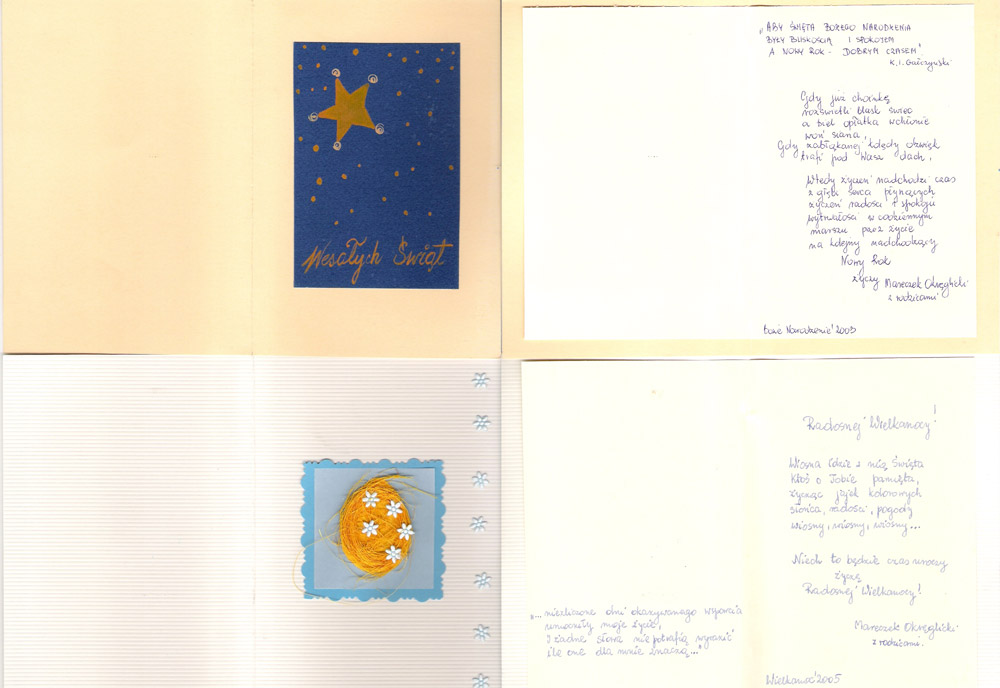 Wesołych Świąt
„ABY ŚWIĘTA BOŻEGO NARODZENIA
BYŁY BLISKOŚCIĄ I SPOKOJEM
A NOWY ROK - DOBRYM CZASEM"
K. I. Gałczyński
Gdy już choinkę
rozświetli blask świec
a biel opłatka wchłonie
woń siana,
Gdy zabłąkanej kolędy dźwięk
trafi pod Wasz dach,
Wtedy życzeń nadchodzi czas
z głębi serca płynących
życzeń radości i spokoju
wytrwałości w codziennym
marszu przez życie
na kolejny nadchodzący
Nowy Rok
życzy Mareczek Okręglicki
z rodzicami
Boże Narodzenie' 2005
Radosnej Wielkanocy!
Wiosna idzie z nią Święta
Ktoś o Tobie pamięta,
życząc jajek kolorowych
słońca, radości, pogody
wiosny, wiosny, wiosny...
Niech to będzie czas uroczy
życzę
Radosnej Wielkanocy!
Mareczek Okręglicki
z rodzicami.
„... niezliczone dni okazywanego wsparcia
umocniły moje życie,
I żadne słowa nie potrafią wyrazić
ile one dla mnie znaczą..."
Wielkanoc' 2005